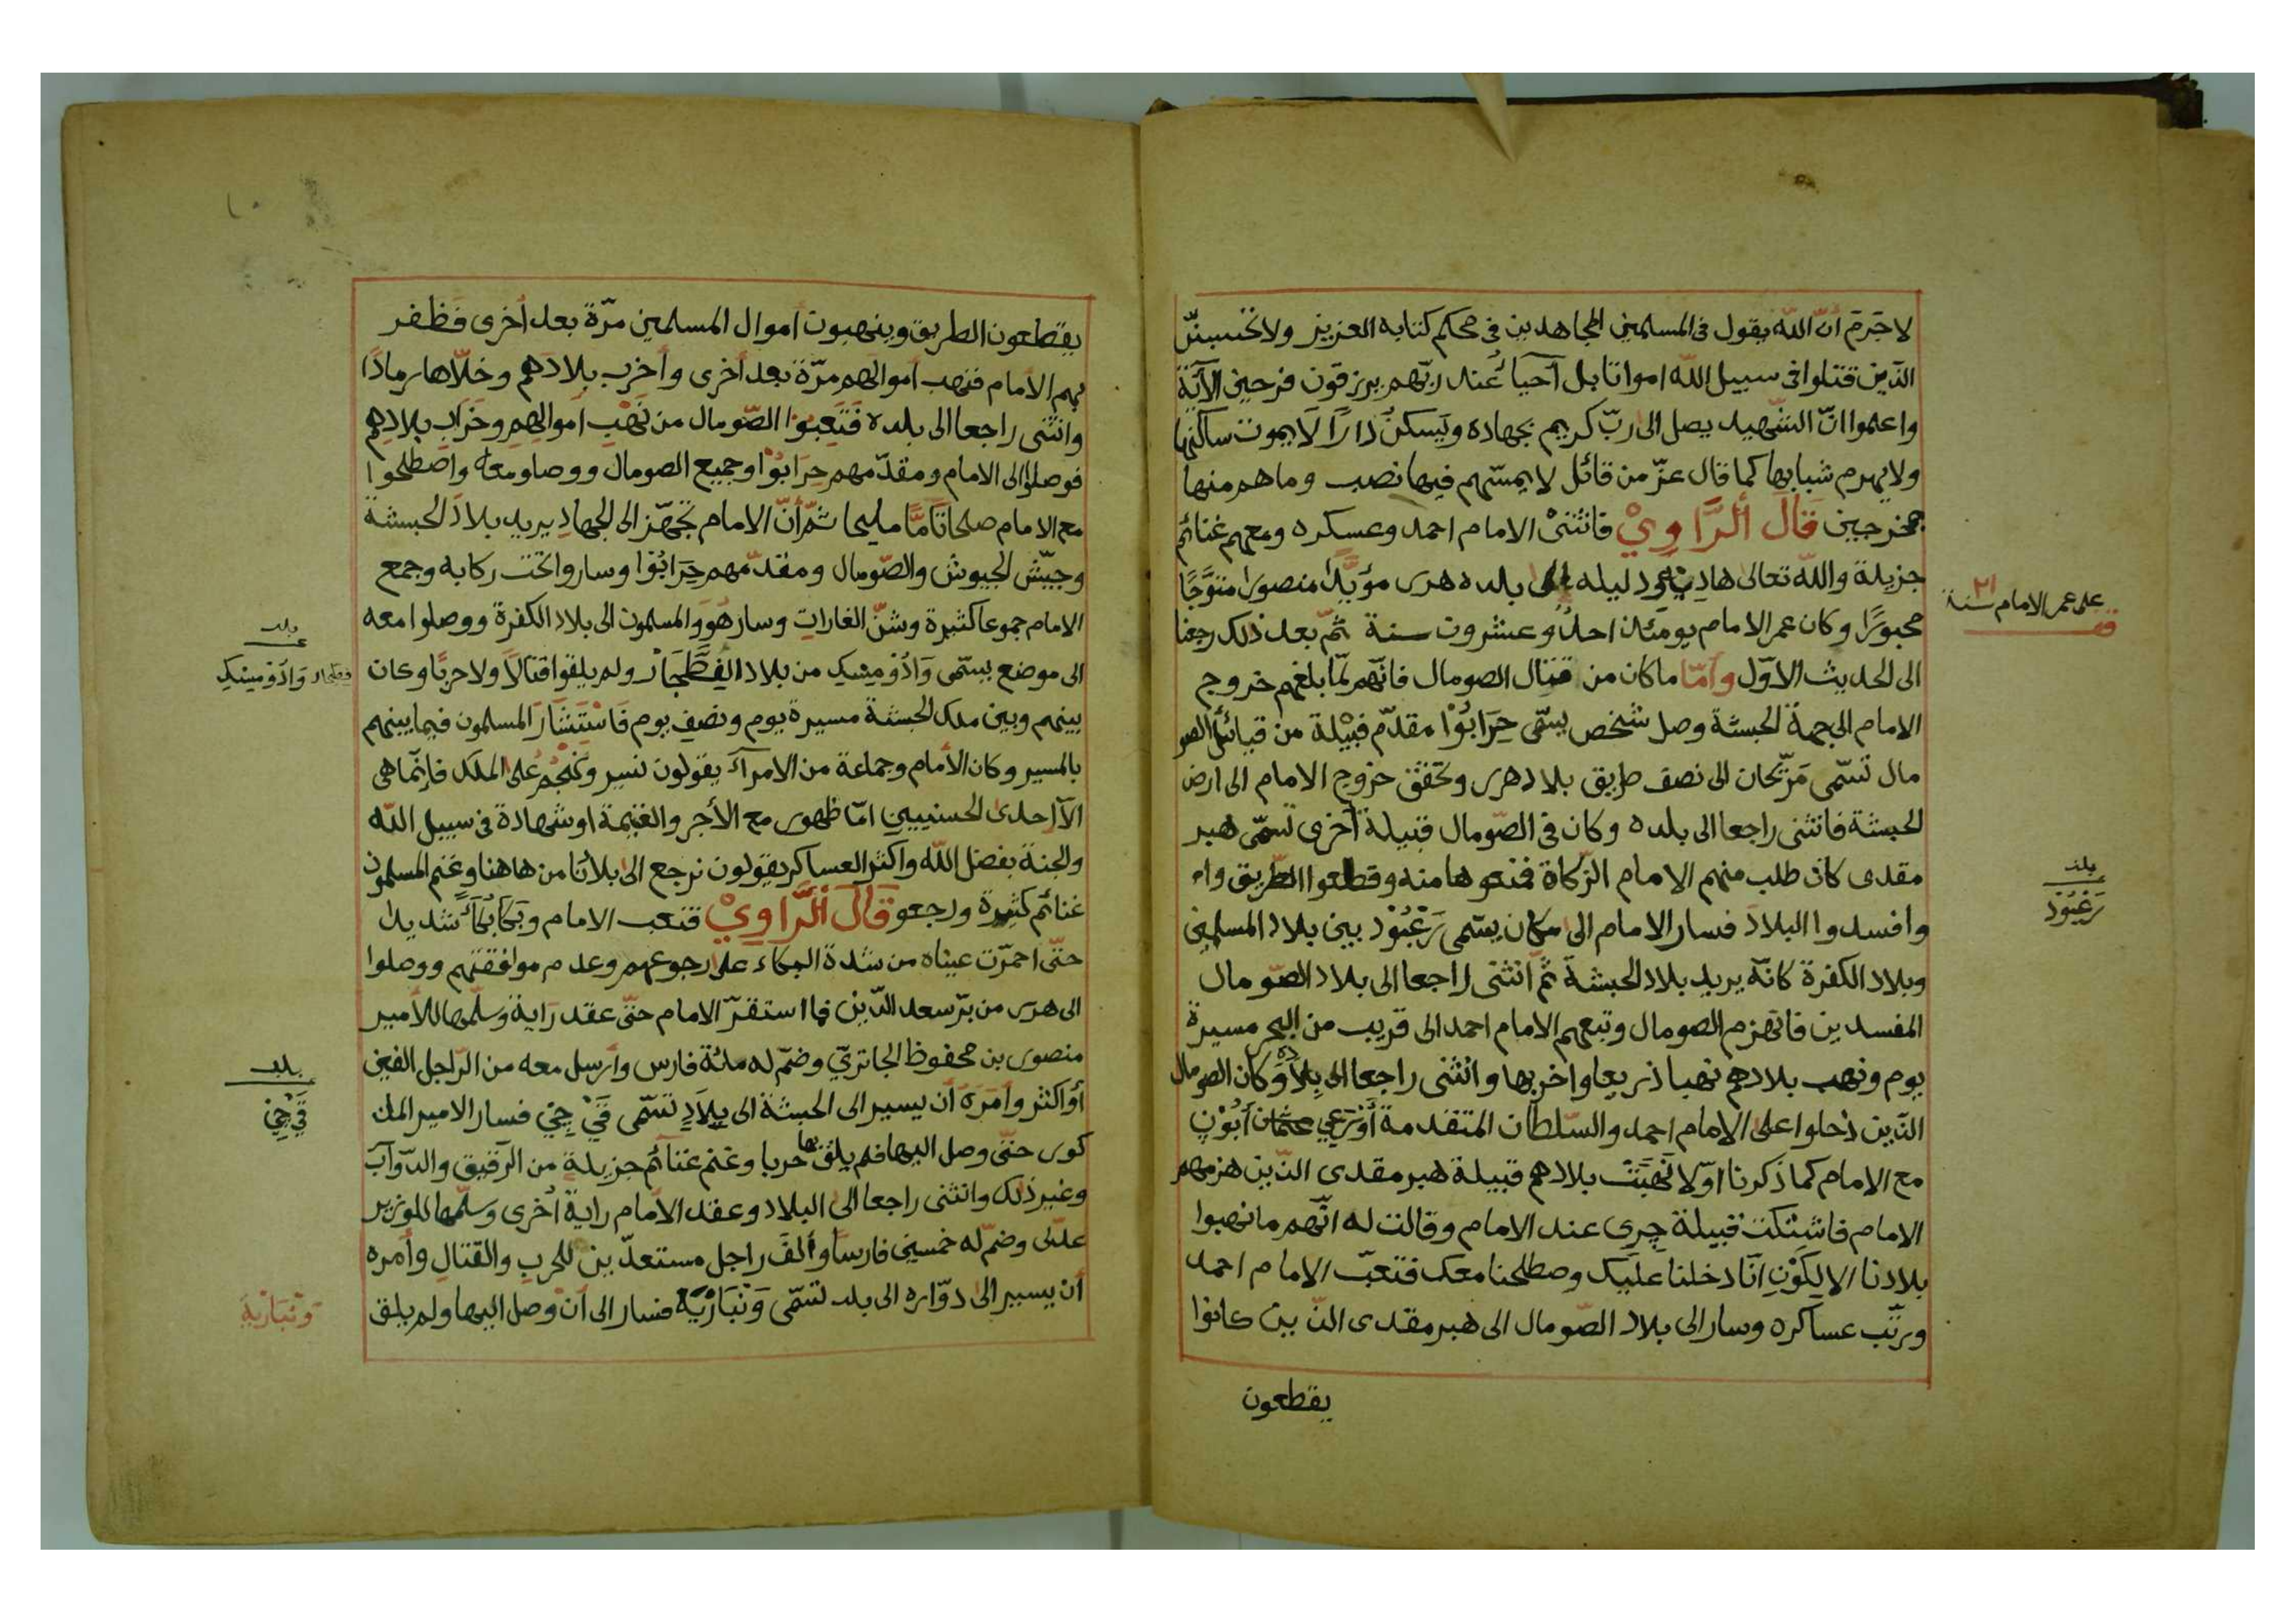 لا جَرَمَ انّ اللّه يقول فى المسلمين المجاهدين في محكم كتابه العزيز ولا تحسبنّ
الذين قتلوا في سبيل اللّه امواتا بل آحياءٌ عند ربّهم يرزقون فرحين الآية
واعلموا انّ الشّهيد يصل الى ربّ كريم بجهاده ويَسكنُ دارًا لا يموت ساكنها
ولا يهرم شبابها كما قال عزّ من قائل لا يمسّهم فيها نصب وما هم منها
بمخرجين قَالَ ألرَّاوِيْ فانثنىْ الامام احمد وعسكره ومعهم غنائم
جزيلة واللّه تعالى هاديه ودليله الى بلده هرر مؤيّدًا منصورا متوَّجًا
محبورًا وكان عمر الامام يومئذ احدٌ وعشرون سنة ثمّ بعد ذلك رجعنا
على عمر الامام سنة ٢١
قف
الى الحديث الاوّل وأمّا ماكان من قتال الصومال فانّهم لمّا بلغهم خروج
الامام الى جهة الحبشة وصل شخص يسمّى حِرَابُوْا مقدّم قبيْلة من قبائل الصو
مال تسمّى مَرّيحان الى نصف طريق بلاد هرر وتحقق خروج الامام الى ارض
الحبشة فانثنى راجعا الى بلده وكان في الصّومال قبيلة أخرى تسمّى هبر
مقدى كان طلب منهم الامام الزّكاة فمنعوها منه وقطعوا الطّريق وا
بلد
زَغْبُوْد
وافسدوا البلادَ فسار الامام الى مكان يسمى زَغْبُوْد بين بلاد المسلمين
وبلاد الكفرة كانّه يريد بلاد الحبشة ثمّ انثنى راجعا الى بلاد الصّومال
المفسدين فانهزم الصومال وتبعهم الامام احمد الى قريب من البحر مسيرة
يوم ونهب بلادهم نهبا ذريعا واخربها وانْثنى راجعا الى بلاده وَكان الصومال
الذّين دخلوا على الامام احمد والسّلطان المتقدمة أوْرَعِي عثمان أبُوْنٍ
مع الامام كما ذكرنا اوّلا نَهَبَتْ بلادهم قبيلة هبر مقدى الذّين هزمهم
الامام فاشتكت قبيلة جِرِى عند الامام وقالت له انّهم ما نهبوا
بلادنا الا لِكَوْنِ انّا دخلنا علَيك وصطلحنا معك فتعبّ الامام احمد
ورتّب عساكره وسار الى بلاد الصّومال الى هبر مقدى الذّين كانوا
يقطعون
يقطعون الطريق وينهبون اموال المسلمين مرّة بعد اخرى فظفر
بهم الامام فنهب أموالهم مرّة بعد أخرى وأخرب بلادهم وخلاّها رمادًا
وانثنى راجعا الى بلده فَتَعِبُوْا الصّومال من نَهْبِ اموالهِم وخَرَاب بلادِهم
فوصلوا الى الامام ومقدّمهم حِرَابُوْا وجميع الصومال ووصلو معه واصْطلحوا
مع الامام صلحا تَامًّا مليحا ثمّ أنّ الامام تجهّز الى الجهادِ يريد بلادَ الحبشة
وجيّش الجيوش والصّومال ومقدّمهم حِرَابُوْا وساروا تحت ركابه وجمع
الامام جموعا كثيرة وشنّ الغارات وسار هُوَ والمسلمون الى بلاد الكفرة ووصلوا معه
الى موضع يسمّى وَادْوْميسْك من بلاد الفَطَّجَارْ ولم يلقوا قتالاً ولا حربًا وكان
بلد
فطجار وَادْوْميسْك
بينهم وبين ملك الحبشة مسيرة يوم ونصف يوم فَاسْتَشَارَ المسلمون فيما بينهم
بالمسير وكان الأمام وجماعة من الامرآء يقولون نسير ونَهْجُمُ على الملك فإنّما هى
الاّ إحدى الحسنيين امّا ظهور مع الأجر والغنيمة او شهادة فى سبيل اللّه
والجنة بفضل اللّه واكثر العساكر يقولون نرجع الى بلادنا من هاهنا وغنم المسلمون
غنائم كثيرة ورجعو قَالَ ألرَّاوِيْ فتعب الامام وبَكَا بُكَآءً شديدا
حتّى احمرّت عيناه من شدة البكاء على رجوعهم وعدم موافقتهم ووصلوا
الى هرر من برّ سعد الدّين فما استقرّ الامام حتّى عقد رَايةً وسلّمها للأمير
منصور بن محفوظ الجاتريّ وضمّ له مائة فارس وأرسل معه من الرّاجل الفين
أو اكثر وأمَرَه أن يسير الى الحبشة الى بِلاَدٍ تسَمّى قَيْ جِنْ فسار الامير المذ
بلد
قَيْ جِنْ
كور حتّى وصل اليها فلم يلق بها حربا وغنم غنائم جزيلة من الرّقيق والدّوآبّ
وغير ذلك وانثنى راجعا الى البلاد وعقد الامام راية أخرى وسلّمها للوزير
عدّلى وضمّ له خمسين فارسا وألفَ راجل مستعدّين للحرب والقتال وأمره
أن يسير الى دوّاره الى بلد تسَمّى وَنْبَارْيَةْ فسار الى أنْ وصل اليها ولم يلق
وَنْبَارْيَةْ